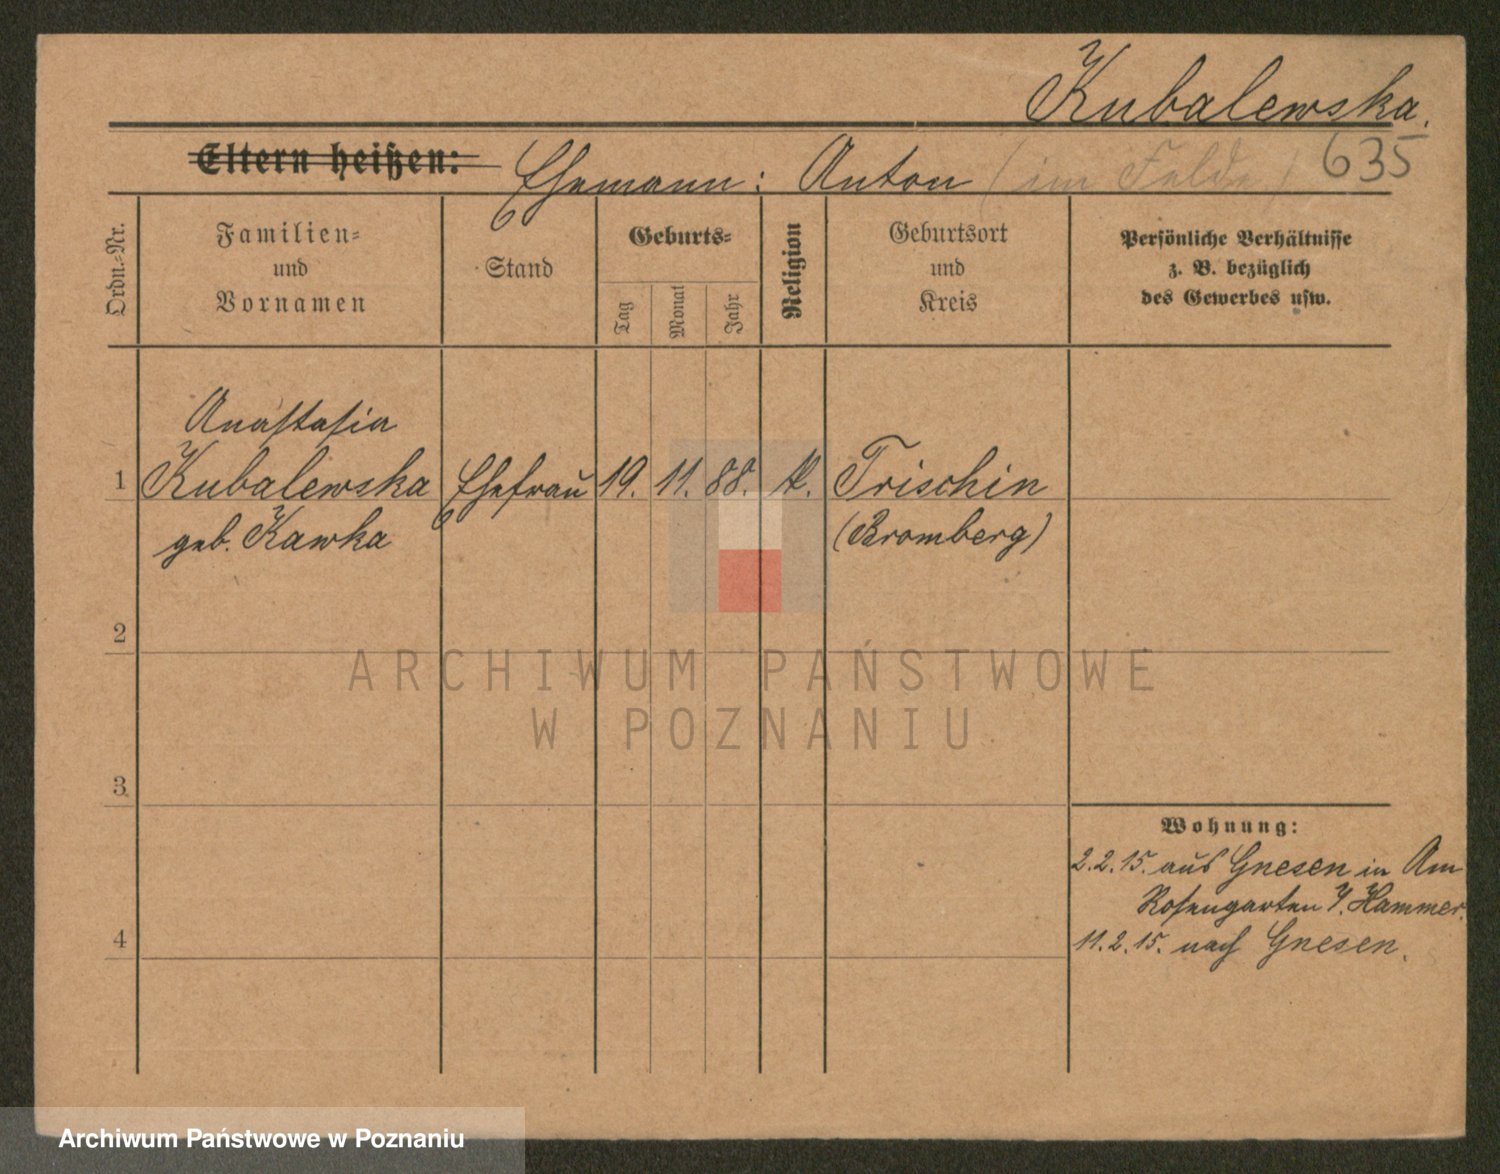 Kubalewska.
635
Eltern heißen: Ehemann: Anton (im Felde)
Ordn.-Nr.
Familien-
und
Vornamen
Stand
Geburts-
Tag
Monat
Jahr
Religion
Geburtsort
und
Kreis
Persönliche Verhältnisse
z. B. bezüglich
des Gewerbes usw.
Anastasia
1 Kubalewska Ehefrau 19. 11. 88. k. Trischin
geb. Kawka (Bromberg)
2
3
4
Wohnung:
2.2.15. aus Gnesen in Am
Rosengarten 7. Hammer.
11.2.15. nach Gnesen.
ARCHIWUM PAŃSTWOWE
W POZNANIU
Archiwum Państwowe w Poznaniu